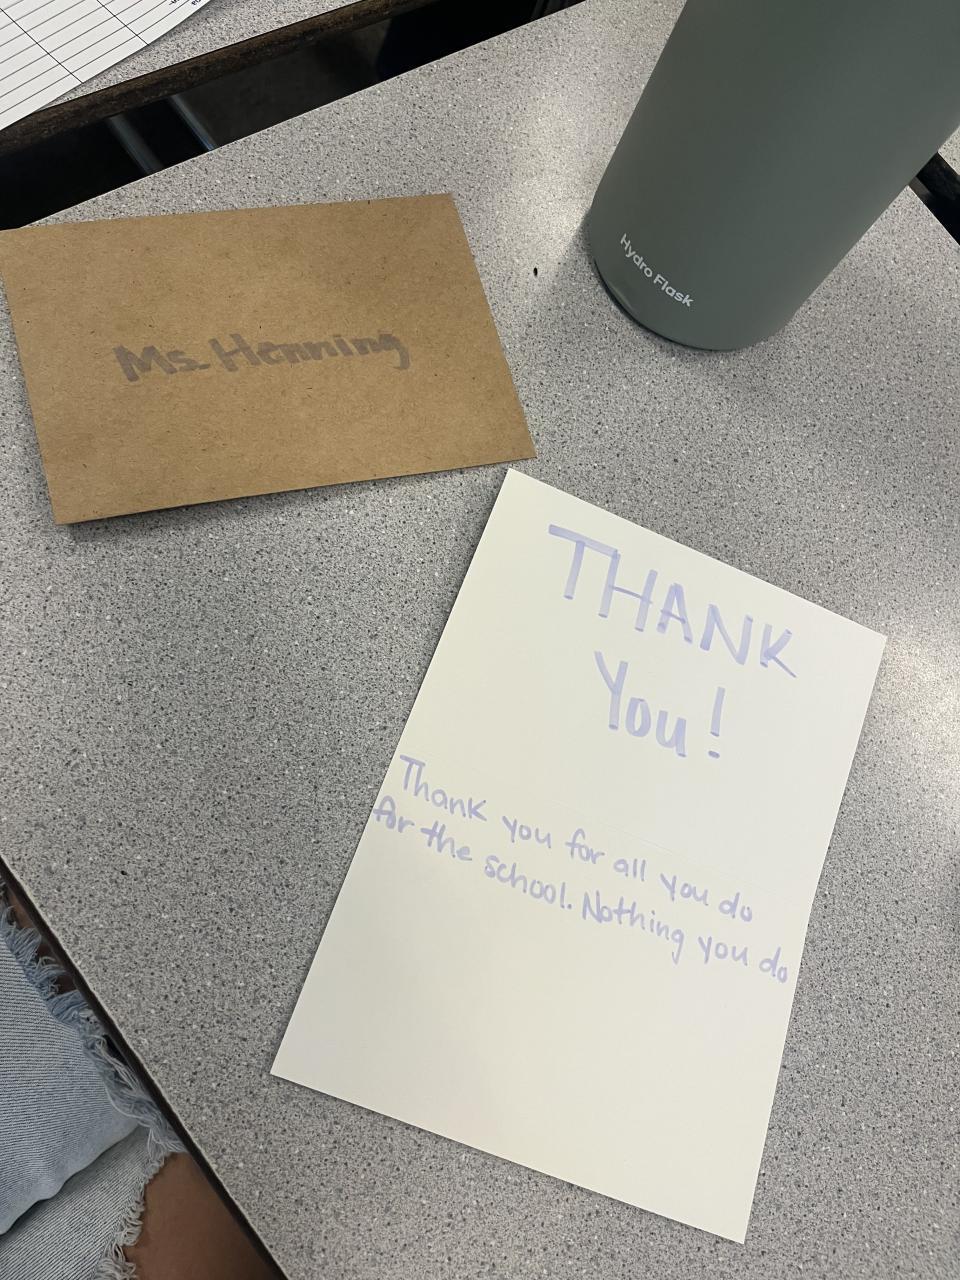 Ms. Henning
Hydro Flask
THANK
You!
Thank you for all you do
for the school. Nothing you do